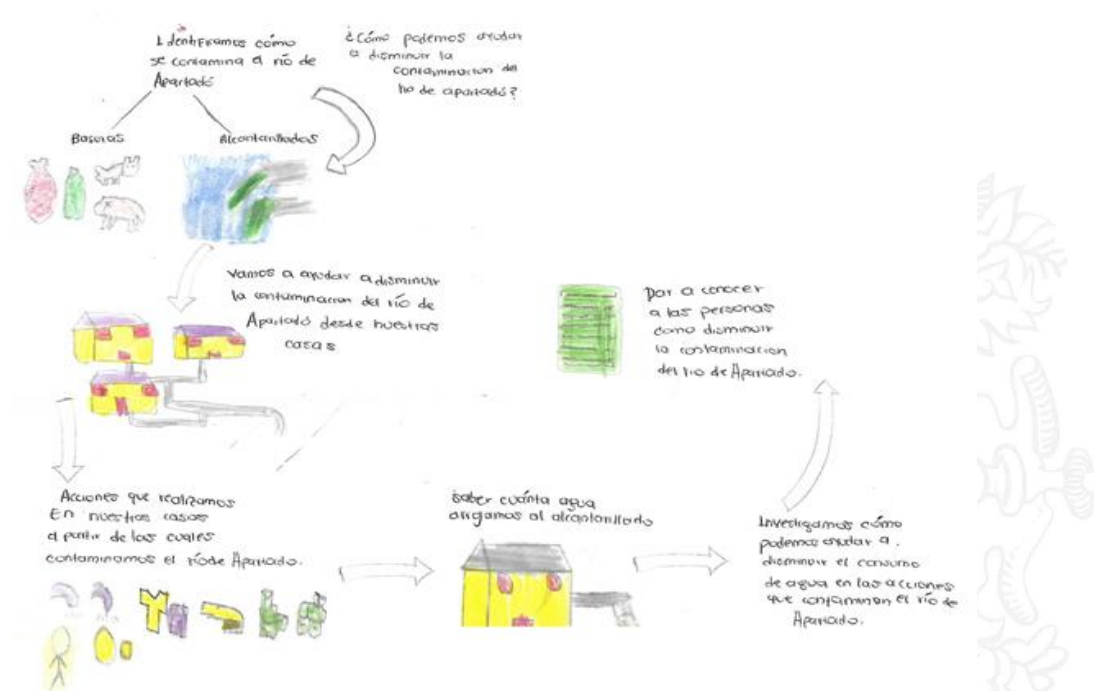 Identificamos cómo
se contamina el río de
Apartadó
¿Cómo podemos ayudar
a disminuir la
contaminación del
río de apartadó?
Basuras
Alcantarillados
Vamos a ayudar a disminuir
la contaminación del río de
Apartadó desde nuestras
casas
Acciones que realizamos
En nuestras casas
a partir de las cuales
contaminamos el río de Apartado.
saber cuánta agua
arrojamos al alcantarillado
Investigamos cómo
podemos ayudar a.
disminuir el consumo
de agua en las acciones
que contaminan el río de
Apartado.
Dar a conocer
a las personas
como disminuir
la contaminacion
del rio de Apartado.